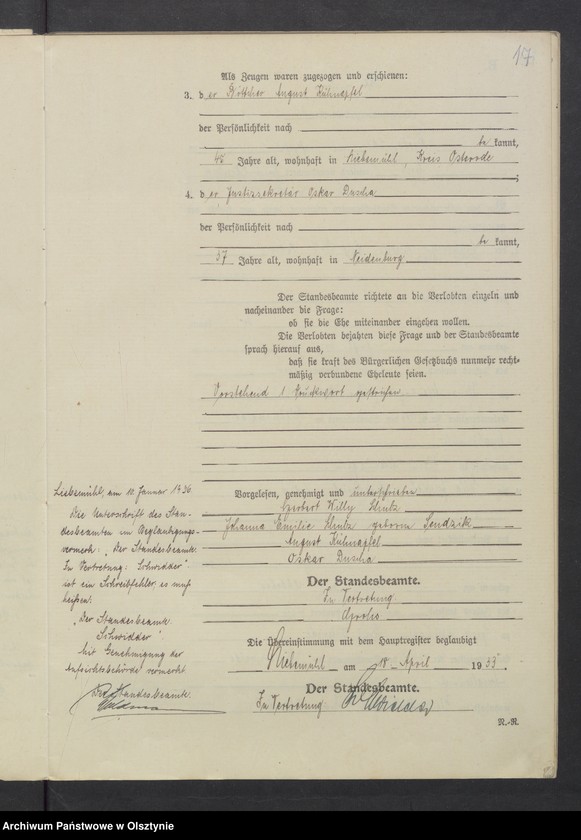 17
Als Zeugen waren zugezogen und erschienen:
3. der Böttcher August Kühnapfel
der Persönlichkeit nach
be kannt,
45 Jahre alt, wohnhaft in Liebemühl, Kreis Osterode
;
4. der Justizsekretär Oskar Duscha
der Persönlichkeit nach
be kannt,
37 Jahre alt, wohnhaft in Neidenburg
Der Standesbeamte richtete an die Verlobten einzeln und
nacheinander die Frage:
ob sie die Ehe miteinander eingehen wollen.
Die Verlobten bejahten diese Frage und der Standesbeamte
sprach hierauf aus,
daß sie kraft des Bürgerlichen Gesetzbuchs nunmehr recht-
mäßig verbundene Eheleute seien.
Vorstehend 1 Druckwort gestrichen
Vorgelesen, genehmigt und unterschrieben
Herbert Willy
Johanna Emilie geborene Sendzik
August Kühnapfel
Oskar Duscha
Der Standesbeamte.
In Vertretung
Die Übereinstimmung mit dem Hauptregister beglaubigt
Liebemühl am 18 April 1933.
Der Standesbeamte.
In Vertretung Schwidder
N.-R.
Liebemühl, am 10. Januar 1936
Die Unterschrift des Stan-
desbeamten im Beglaubigungs-
vermerk: „Der Standesbeamte.
In Vertretung: Schwidder"
ist ein Schreibfehler, es muß
heißen:
„Der Standesbeamte.
Schwidder"
Mit Genehmigung der
Aufsichtsbehörde vermerkt
Der Standesbeamte.
Archiwum Państwowe w Olsztynie